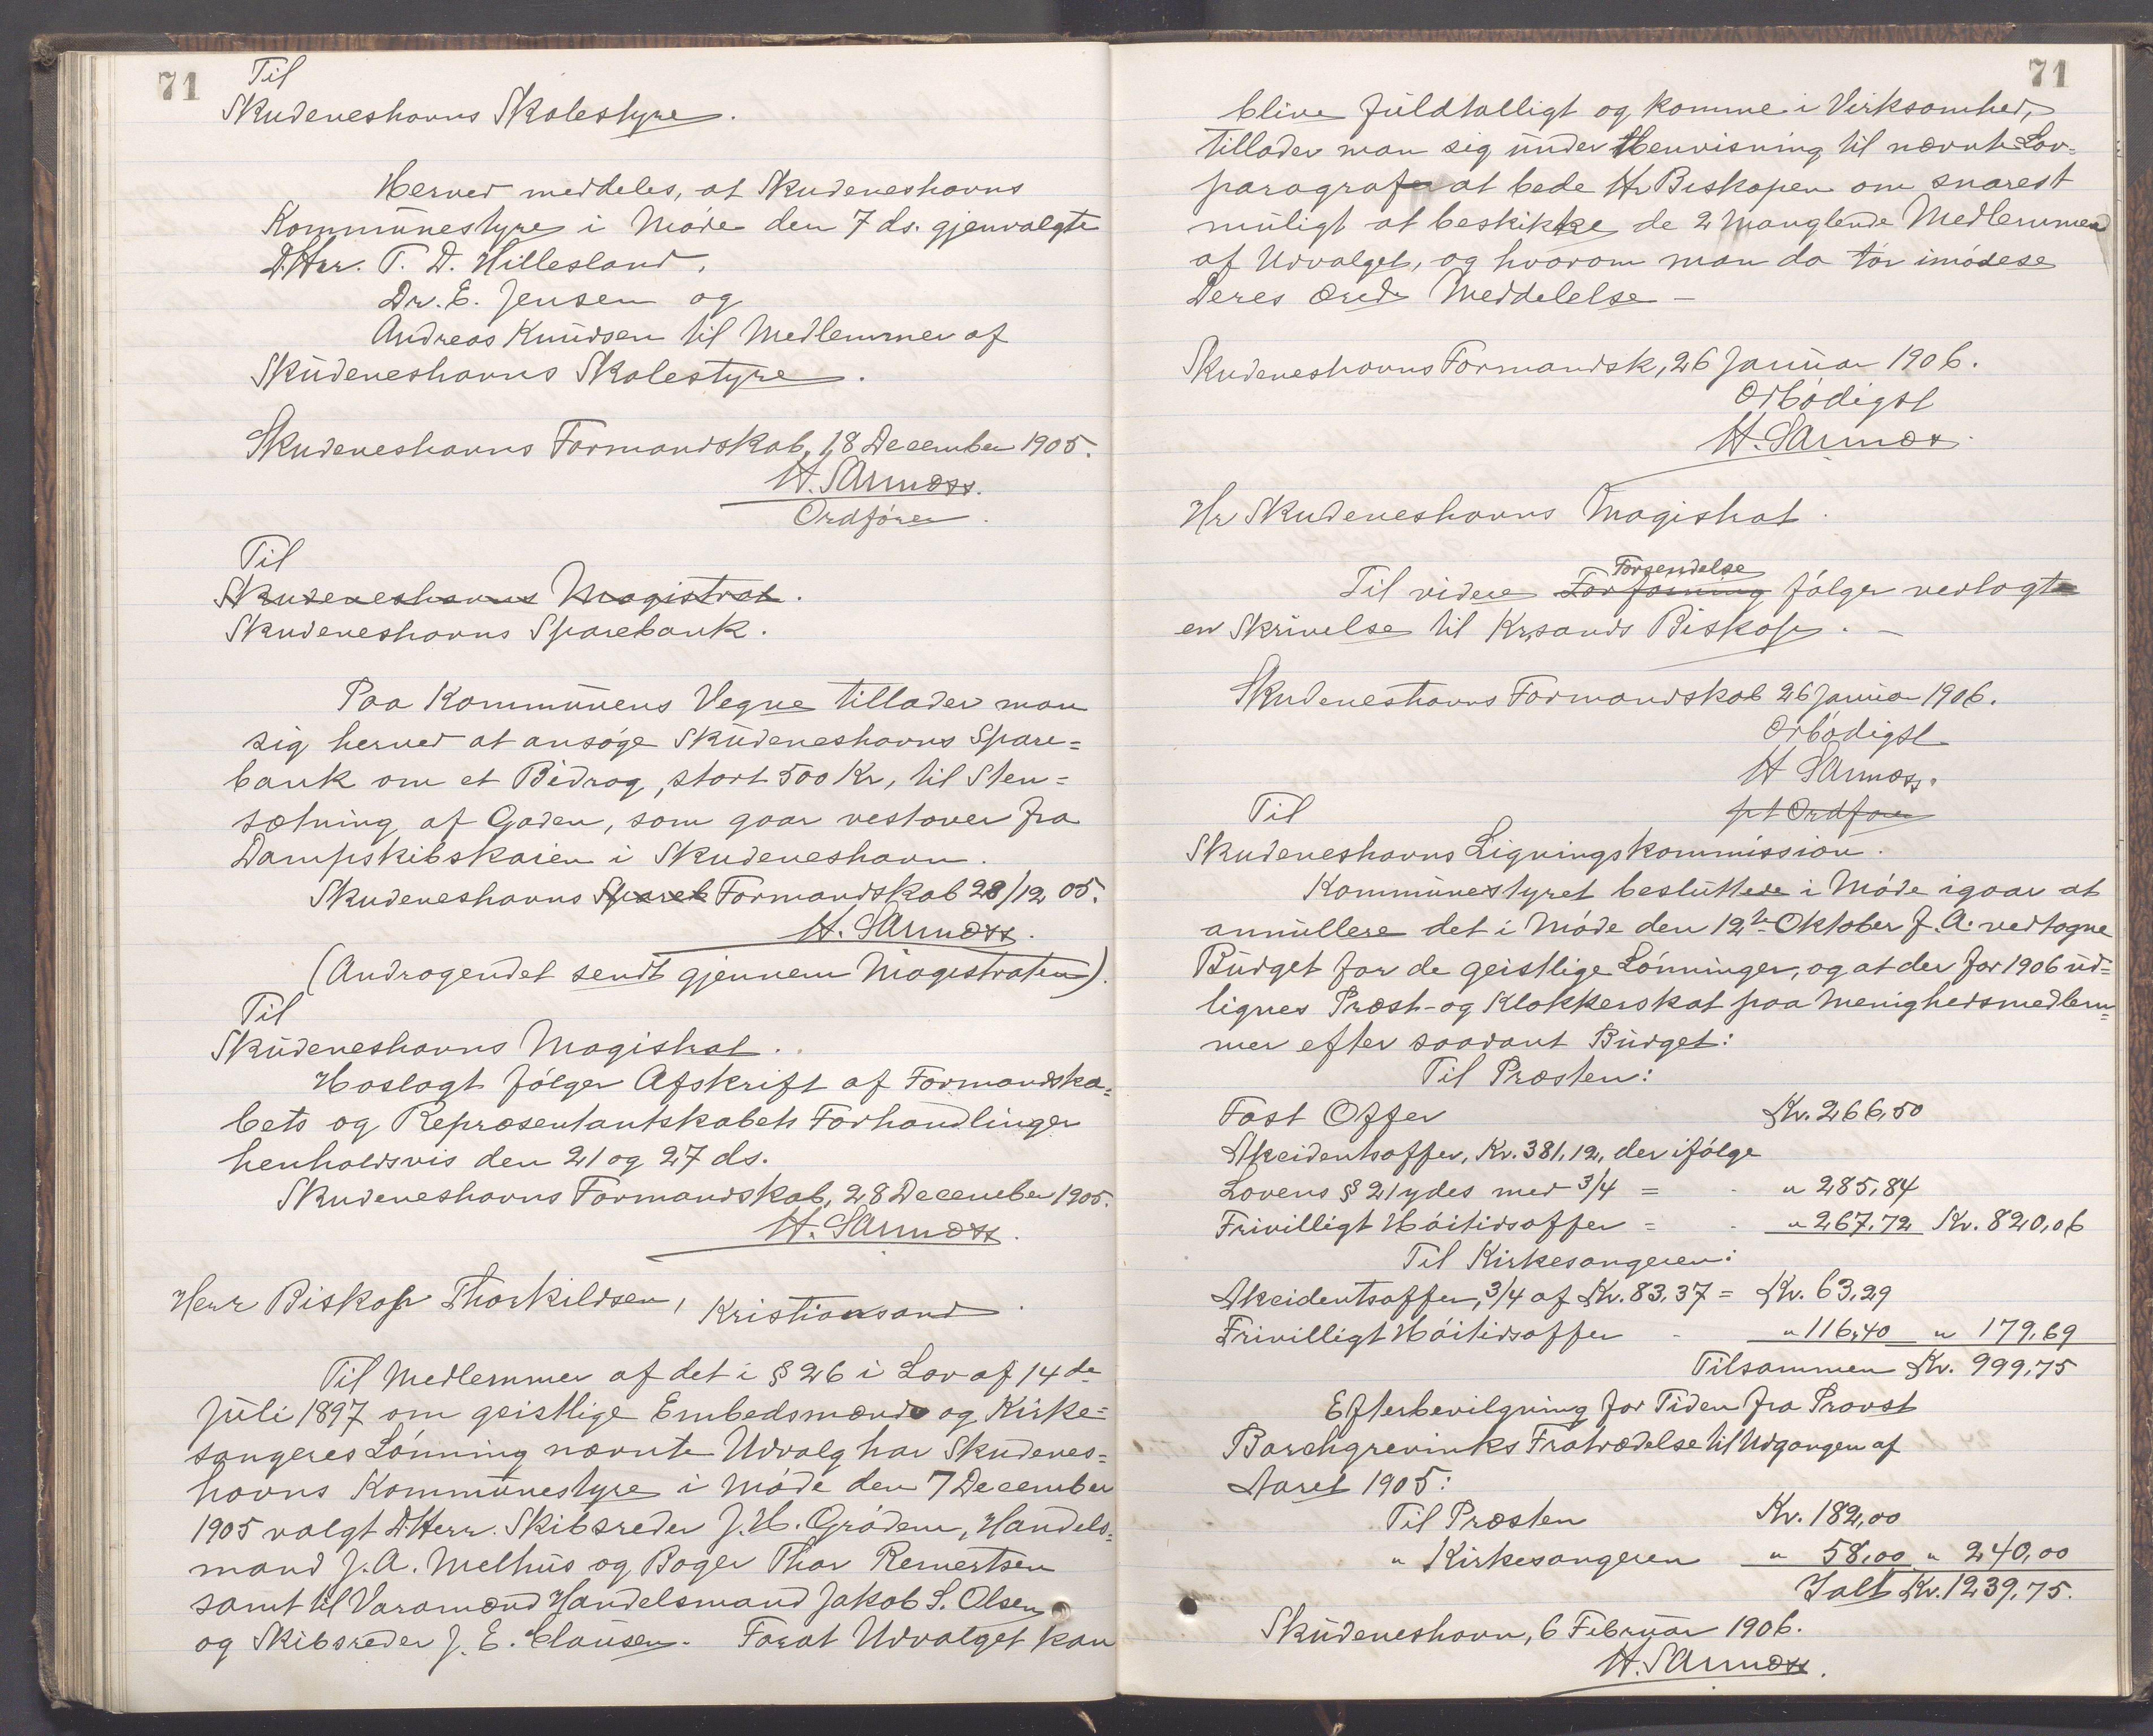 71
Til
Skudeneshavns Skolestyre.
Herved meddeles, at Skudeneshavns
Kommunestyre i Møde den 7 ds. gjenvalgte
D'Herr. T. D. Hillesland,
Dr. E. Jensen og
Andreas Knudsen til Medlemmer af
Skudeneshavns Skolestyre.
Skudeneshavns Formandskab, 18 December 1905.
Ordfører.
Til
Skudeneshavns Magistrat.
Skudeneshavns Sparebank.
Paa Kommunens Vegne tillader man
sig herved at ansøge Skudeneshavns Spare=
bank om et Bidrag, stort 500 Kr, til Sten=
sætning af Gaden, som gaar vestover fra
Dampskibskaien i Skudeneshavn.
Skudeneshavns Spareb Formandskab 28/12 05.
(Andragendet sendt gjennem Magistraten).
Til
Skudeneshavns Magistrat.
Hoslagt følger Afskrift af Formandska=
bets og Repræsentantskabets Forhandlinger
henholdsvis den 21 og 27 ds.
Skudeneshavns Formandskab, 28 December 1905.
Herr Biskop Thorkildsen, Kristiansand.
Til Medlemmer af det i § 26 i Lov af 14de
Juli 1897 om geistlige Embedsmænds og Kirke=
sangeres Lønning nævnte Udvalg har Skudenes=
havns Kommunestyre i Møde den 7 December
1905 valgt D'Herr. Skibsreder J. H. Grødem, Handels=
mand J. A. Melhus og Bager Thor Reinertsen
samt til Varamænd Handelsmand Jakob S. Olsen
og Skibsreder J. E. Clausen. Forat Udvalget kan
71
blive fuldtalligt og komme i Virksomhed,
tillader man sig under Henvisning til nævnte Lov=
paragraf at bede Hr Biskopen om snarest
muligt at beskikke de 2 manglende Medlemmer
af Udvalget, og hvorom man da tør imødese
Deres ærede Meddelelse –
Skudeneshavns Formandsk, 26 Januar 1906.
Ærbødigst
Hr Skudeneshavns Magistrat.
Forsendelse
Til videre følger vedlagt
en Skrivelse til Krsands Biskop. –
Skudeneshavns Formandskab 26 Januar 1906.
Ærbødigst
pt Ordfører
Til
Skudeneshavns Ligningskommission.
Kommunestyret besluttede i Møde igaar at
annullere det i Møde den 12te Oktober f. A. vedtagne
Budget for de geistlige Lønninger, og at der for 1906 ud=
lignes Præst- og Klokkerskat paa Menighedsmedlem=
mer efter saadant Budget:
Til Præsten:
Fast Offer Kr. 266,50
Akcidentsoffer, Kr. 381,12, der ifølge
Lovens § 21 ydes med 3/4 = - " 285,84
Frivilligt Høitidsoffer = - " 267,72 Kr. 820,06
Til Kirkesangeren:
Akcidentsoffer, 3/4 af Kr. 83,37 = Kr. 63,29
Frivilligt Høitidsoffer - " 116,40 " 179,69
Tilsammen Kr. 999,75
Efterbevilgning for Tiden fra Provst
Barchgrevinks Fratrædelse til Udgangen af
Aaret 1905:
Til Præsten Kr. 182,00
" Kirkesangeren " 58,00 " 240,00
Ialt Kr. 1239,75.
Skudeneshavn, 6 Februar 1906.